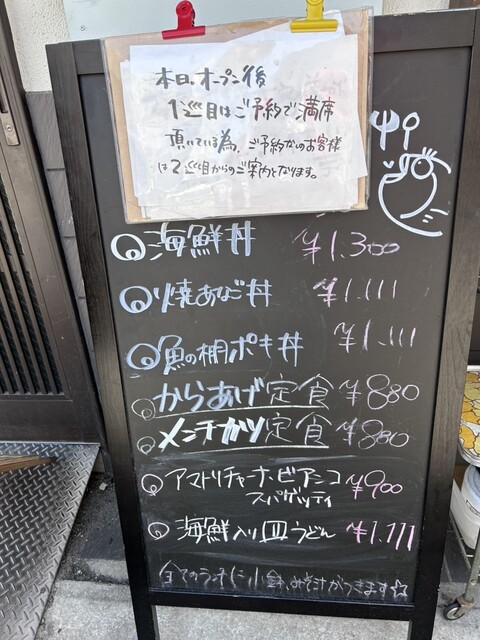 本日、オープン後
1巡目はご予約で満席
頂いている為、ご予約なしのお客様
は2巡目からのご案内となります。
海鮮丼 ¥1.300
焼あなご丼 ¥1.111
魚の棚ポキ丼 ¥1.111
からあげ定食 ¥880
メンチカツ定食 ¥880
アマトリチャーナ・ビアンコ
スパゲッティ ¥900
海鮮入り皿うどん ¥1.111
全てのランチに小鉢、みそ汁がつきます☆